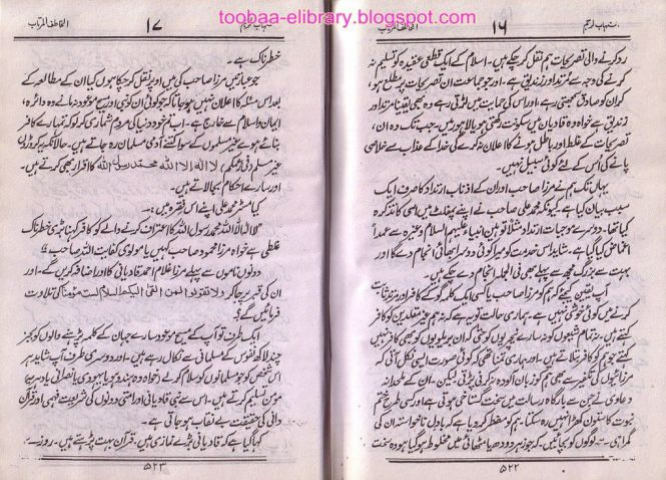 toobaa-elibrary.blogspot.com
۱۶
رد کرنے والی تصریحات ہم نقل کر چکے ہیں۔ اسلام کے ایک قطعی عقیدہ کو تسلیم نہ
کرنے کی وجہ سے مرتد اور زندیق ہے۔ اور جو جماعت ان تصریحات پر مطلع ہو
کر ان کو صادق سمجھتی رہے اور اس کی حمایت میں لڑتی رہے وہ بھی یقیناً مرتد اور
زندیق ہے خواہ وہ قادیان میں سکونت رکھتی ہو یا لاہور میں۔ جب تک وہ ان
تصریحات کے غلط اور باطل ہونے کا اعلان نہ کرے گی خدا کے عذاب سے خلاصی
پانے کی اس کے لئے کوئی سبیل نہیں۔
یہاں تک ہم نے مرزا صاحب اور ان کے اذناب ارتداد کا صرف ایک
سبب بیان کیا ہے کیونکہ محمد علی صاحب نے اپنے پمفلٹ میں اسی کا تذکرہ
کیا تھا۔ دوسرے موجبات ارتداد مثلاً توہین انبیاء علیہم السلام وغیرہ سے عمداً
اغماض کیا گیا ہے۔ شاید اس خدمت کو میرا کوئی دوسرا بھائی انجام دے گا اور
بہت سے بزرگ مجھ سے پہلے بھی فی الجملہ انجام دے چکے ہیں۔
آپ یقین کیجئے کہ ہم کو مرزا صاحب یا کسی ایک کلمہ گو کے کافر اور مرتد ثابت
کرنے میں کوئی خوشی نہیں ہے۔ ہماری حالت تو یہ ہے کہ نہ ہم غیر مقلدین کو کافر
کہتے ہیں، نہ تمام شیعوں کو نہ سارے نیچریوں کو حتی کہ ان بریلویوں کو بھی کافر نہیں
کہتے جو ہم کو کافر بتلاتے ہیں۔ اور ہماری تمنا تھی کہ کوئی صورت ایسی نکل آتی کہ
مرزائیوں کی تکفیر سے بھی ہم کو زبان آلودہ نہ کرنی پڑتی، لیکن۔ ان کے ملحدانہ
دعاوی نے جن سے بارگاہ رسالت میں سخت گستاخی ہوتی ہے اور کسی طرح ختم
نبوت کا ستون کھڑا نہیں رہ سکتا۔ ہم کو مضطر کر دیا ہے کہ بادل ناخواستہ ان کی
گمراہی سے لوگوں کو بچائیں کہ جو زہر دودھ یا مٹھائی میں مخلوط ہو گیا ہو وہ سخت
۵۲۲
۱۷
خطرناک ہے۔
جو عبارتیں مرزا صاحب کی میں اوپر نقل کر چکا ہوں کیا ان کے مطالعہ کے
بعد اس مسئلہ کا اعلان نہیں ہو جاتا کہ جو کوئی ان کو نبی اور مسیح موعود نہ مانے وہ دائرہ
ایمان و اسلام سے خارج ہے۔ اب تم خود دنیا کی مردم شماری کر لو کہ تمہارے کافر
بنائے ہوئے غیر مسلموں کے سوا کتنے آدمی مسلمان رہ جاتے ہیں۔ حالانکہ یہ کروڑوں
غیر مسلم لا الہ الا اللہ محمد رسول اللہ کا اقرار بھی کرتے ہیں۔
اور سارے احکام بجا لاتے ہیں۔
کیا مسٹر محمد علی اپنے اس فقرہ میں :۔
"لا الہ الا اللہ محمد رسول اللہ کا اعتراف کرنے والے کو کافر کہنا بڑی خطرناک
غلطی ہے خواہ مرزا محمود صاحب کہیں یا مولوی کفایت اللہ صاحب"
دونوں ناموں سے پہلے مرزا غلام احمد قادیانی کا اور اضافہ کریں گے۔ اور
ان کی قبر پر جا کر ولا تقولوا لمن القیٰ الیکم السلام لست مؤمنا کی تلاوت
فرمائیں گے؟
ایک طرف تو آپ کے مسیح موعود سارے جہان کے کلمہ پڑھنے والوں کو بجز
چند لاکھ نفوس کے مسلمانی سے نکال رہے ہیں۔ اور دوسری طرف آپ شاید ہر
اس شخص کو جو مسلمانوں کو سلام کر لے (خواہ وہ ہندو ہو یا یہودی یا نصرانی یا دہریہ)
مؤمن تسلیم کرتے ہیں۔ اس سے نبی قادیانی اور امتی دونوں کی شریعت فہمی اور قرآن
دانی کی حقیقت بے نقاب ہو جاتی ہے۔
کہا گیا ہے کہ قادیانی بڑے نمازی ہیں۔ قرآن بہت پڑھتے ہیں۔ روزے
۵۲۳